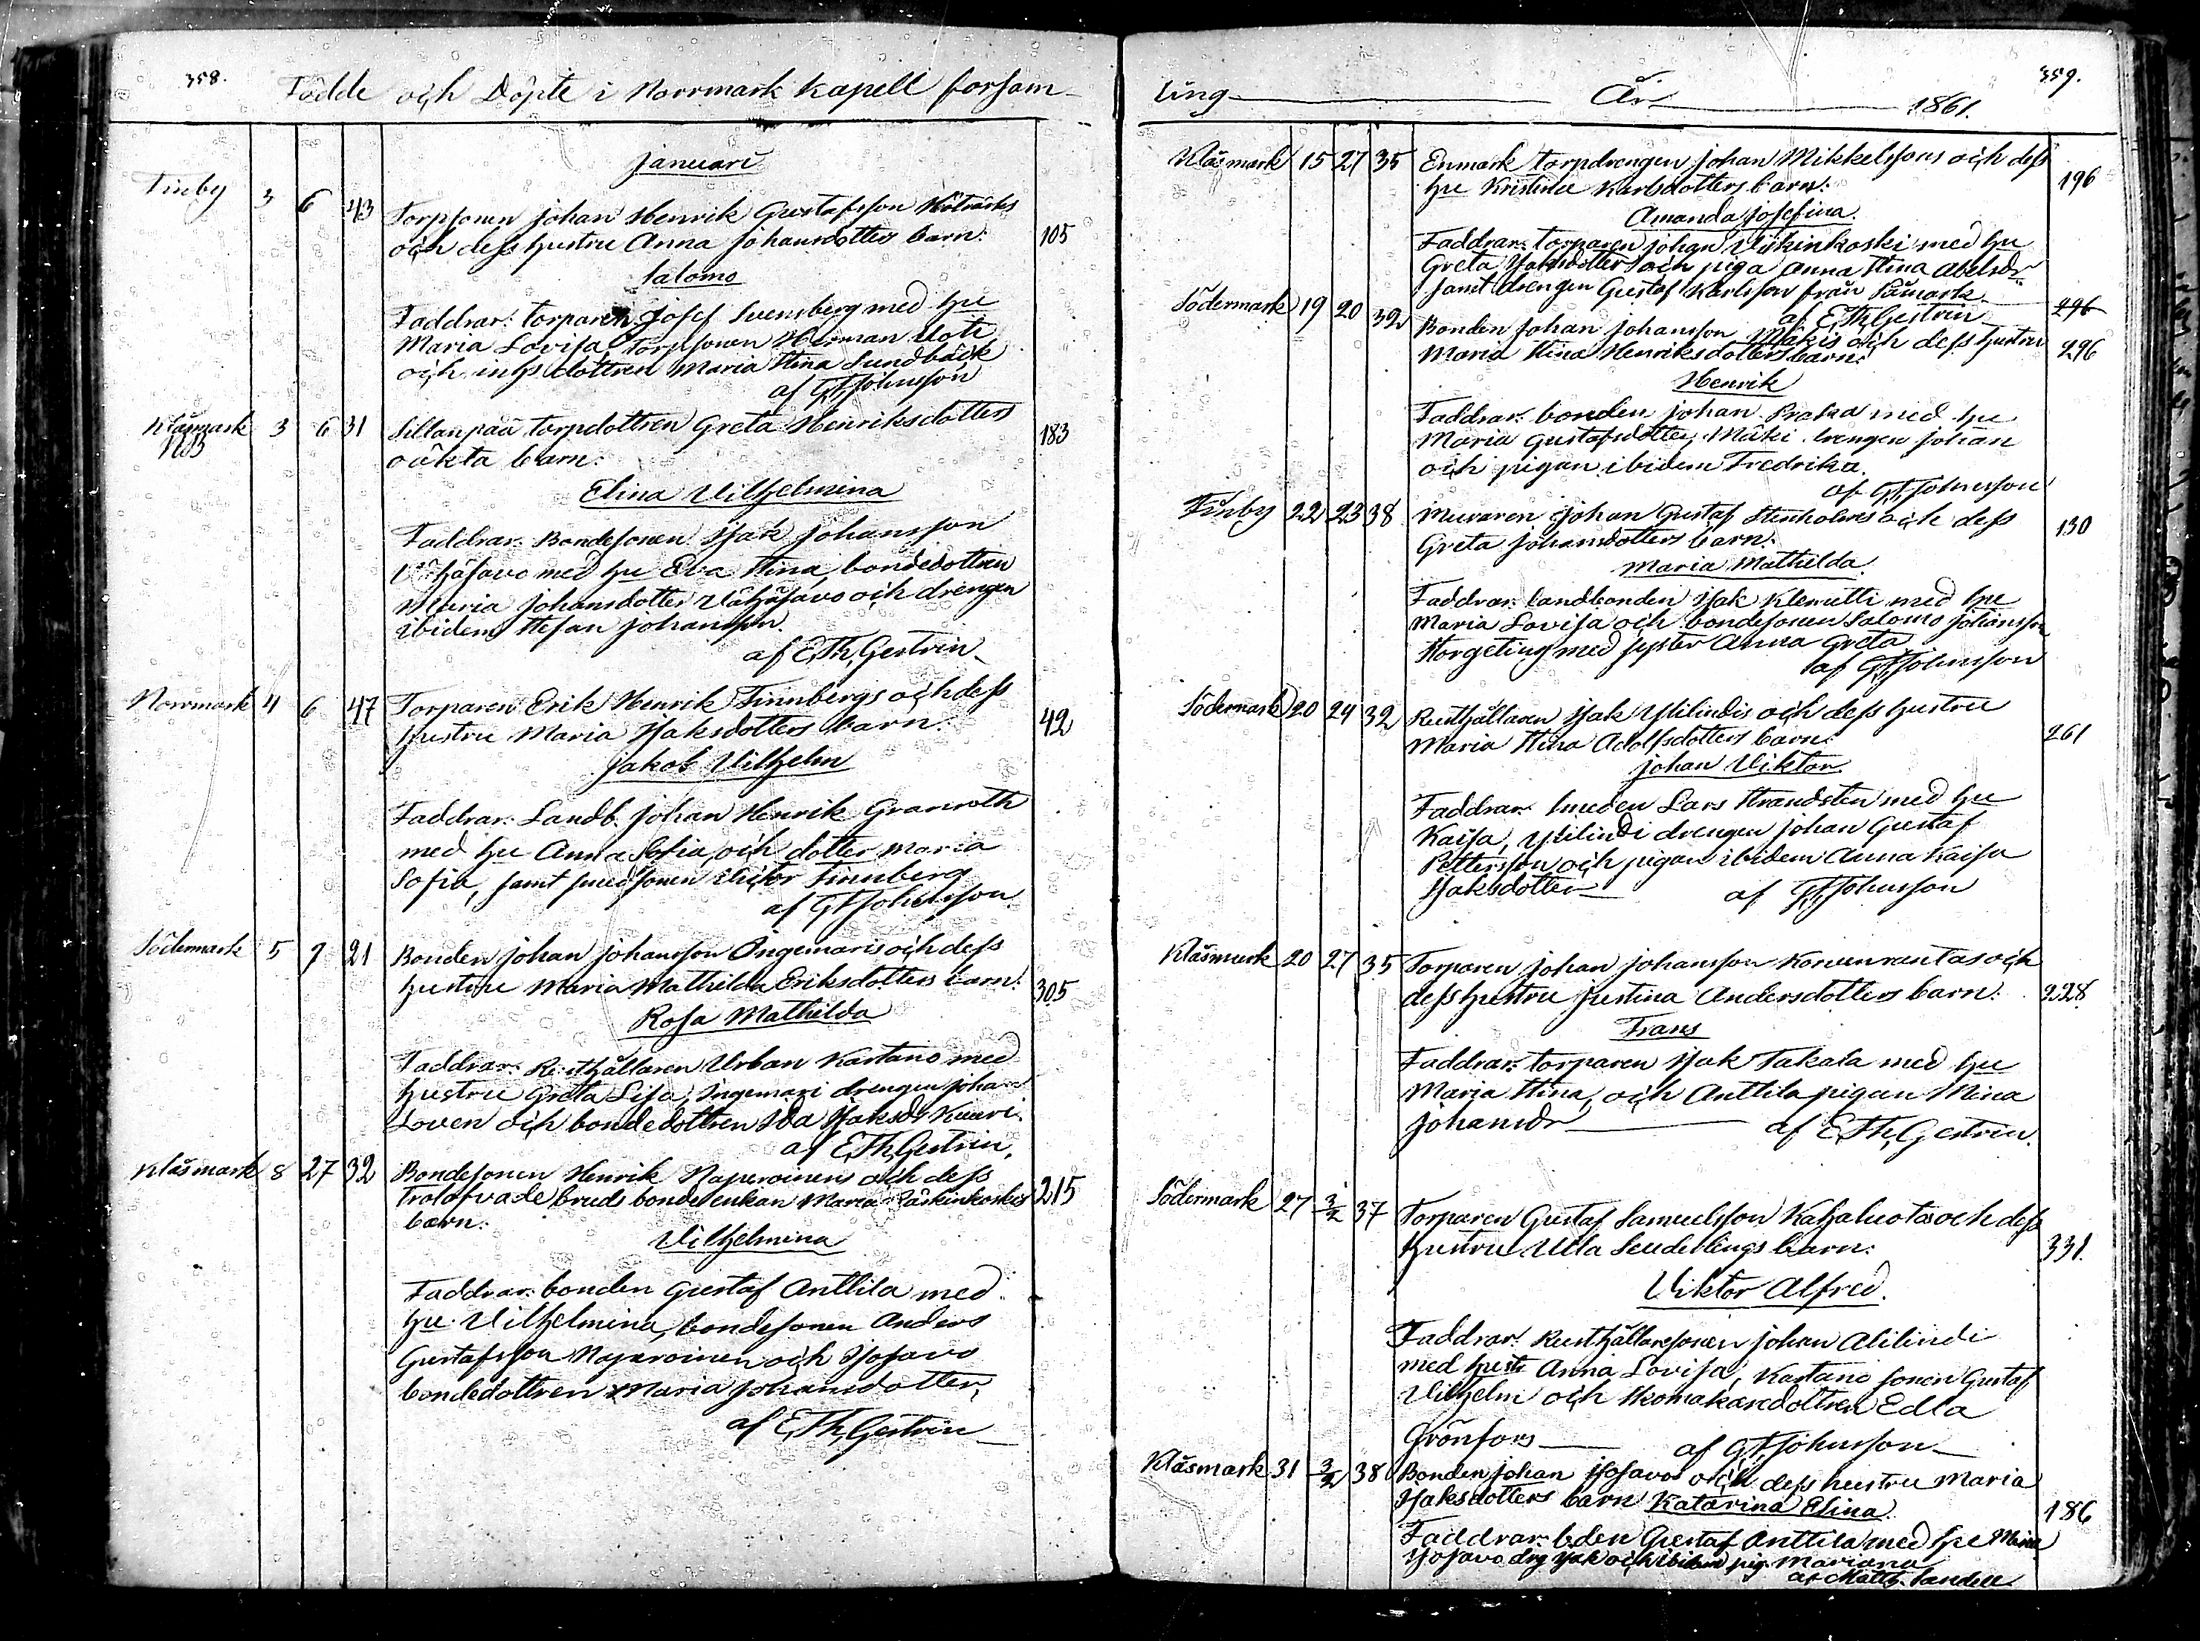 358.
Födde och Döpte i Norrmark Kapell försam-
Januari
Finby 3 6 43 Torpsonen Johan Henrik Gustafsson
och dess hustru Anna Johansdotters barn: 105
Salomo
Faddrar: torparen Josef Svensberg med hu
Maria Lovisa, torpsonen Herman
och inhs dottren Maria Stina Sundbäck
af G.F. Johnsson
Klåsmark NB 3 6 31 Sillanpää torpdottren Greta Henriksdotters 183
oäkta barn:
Elina Vilhelmina
Faddrar: Bondesonen Isak Johansson
med hu Eva Stina, bondedottren
Maria Johansdotter och drengen
ibidem Stefan Johansson.
af E. Th. Gestrin
Norrmark 4 6 47 Torparen Erik Henrik Finnbergs och dess
hustru Maria Isaksdotters barn: 42
Jakob Vilhelm
Faddrar: Landb. Johan Henrik Granroth
med hu Anna Sofia, och dotter Maria
Sofia, samt smedsonen Victor Finnberg
af G.F. Johnsson
Södermark 5 9 21 Bonden Johan Johansson Ingemaris och dess
hustru Maria Mathilda Eriksdotters barn: 305
Rosa Mathilda
Faddrar: Rusthållaren Urban Kartano med
hustru Greta Lisa, Ingemari drengen Johan
Loven och bondedottren Ida Isaksdr Kuuri.
af E. Th. Gestrin.
Klåsmark 8 27 32 Bondesonen Henrik Naperoinens och dess
trolofvade bruds bondeenkan Maria 215
barn:
Vilhelmina
Faddrar: bonden Gustaf Anttila med
hu Vilhelmina, bondesonen Anders
Gustafsson Naperoinen och Isosavo
bondedottren Maria Johansdotter,
af E. Th. Gestrin
359.
ling År 1861.
Klåsmark 15 27 35 Enmark torpdrengen Johan Mikkelssons och dess
hu Kristina Karlsdotters barn: 196
Amanda Josefina.
Faddrar: torparen Johan med hu
Greta Isaksdotter och piga Anna Stina Abelsdr
samt drengen Gustaf Karlsson från Såmark
af E. Th. Gestrin
Södermark 19 20 32 Bonden Johan Johansson Mäkis och dess hustru 296
Maria Stina Henriksdotters barn: 296
Henrik
Faddrar: bonden Johan Praka med hu
Maria Gustafsdotter, Mäki drengen Johan
och pigan ibidem Fredrika.
af G.F. Johnsson
Finby 22 23 38 Muraren Johan Gustaf Stenholms och dess 130
Greta Johansdotters barn:
Maria Mathilda.
Faddrar: landbonden Isak Klemetti med hu
Maria Lovisa och bondesonen Salomo Johansson
Storgeting med syster Anna Greta
af G.F. Johnsson
Södermark 20 24 32 Rusthållaren Isak Ylilindis och dess hustru
Maria Stina Adolfsdotters barn: 261
Johan Viktor.
Faddrar: smeden Lars Strandsten med hu
Kaisa, Ylilindi drengen Johan Gustaf
Pettersson och pigan ibidem Anna Kaisa
Isaksdotter af G.F. Johnsson
Klåsmark 20 27 35 Torparen Johan Johansson Korvenrantas och
dess hustru Justina Andersdotters barn: 228
Frans
Faddrar: torparen Isak Takala med hu
Maria Stina, och Anttila pigan Mina
Johansdr af E. Th. Gestrin.
Södermark 27 3/2 37 Torparen Gustaf Samuelsson Kahaluotos och dess
hustru Ulla Seudelings barn: 331.
Viktor Alfred.
Faddrar: Rusthållaresonen Johan Alilindi
med hustr Anna Lovisa, Kartano sonen Gustaf
Vilhelm och skomakaredottren Edla
Grönfors af G.F. Johnsson
Klåsmark 31 3/2 38 Bonden Johan Isosavos och dess hustru Maria
Isaksdotters barn Katarina Elina. 186
Faddrar: bden Gustaf Anttila med hu Mina
Isosavo drg Isak och ibidem pig. Mariana
af Matth. Sandell